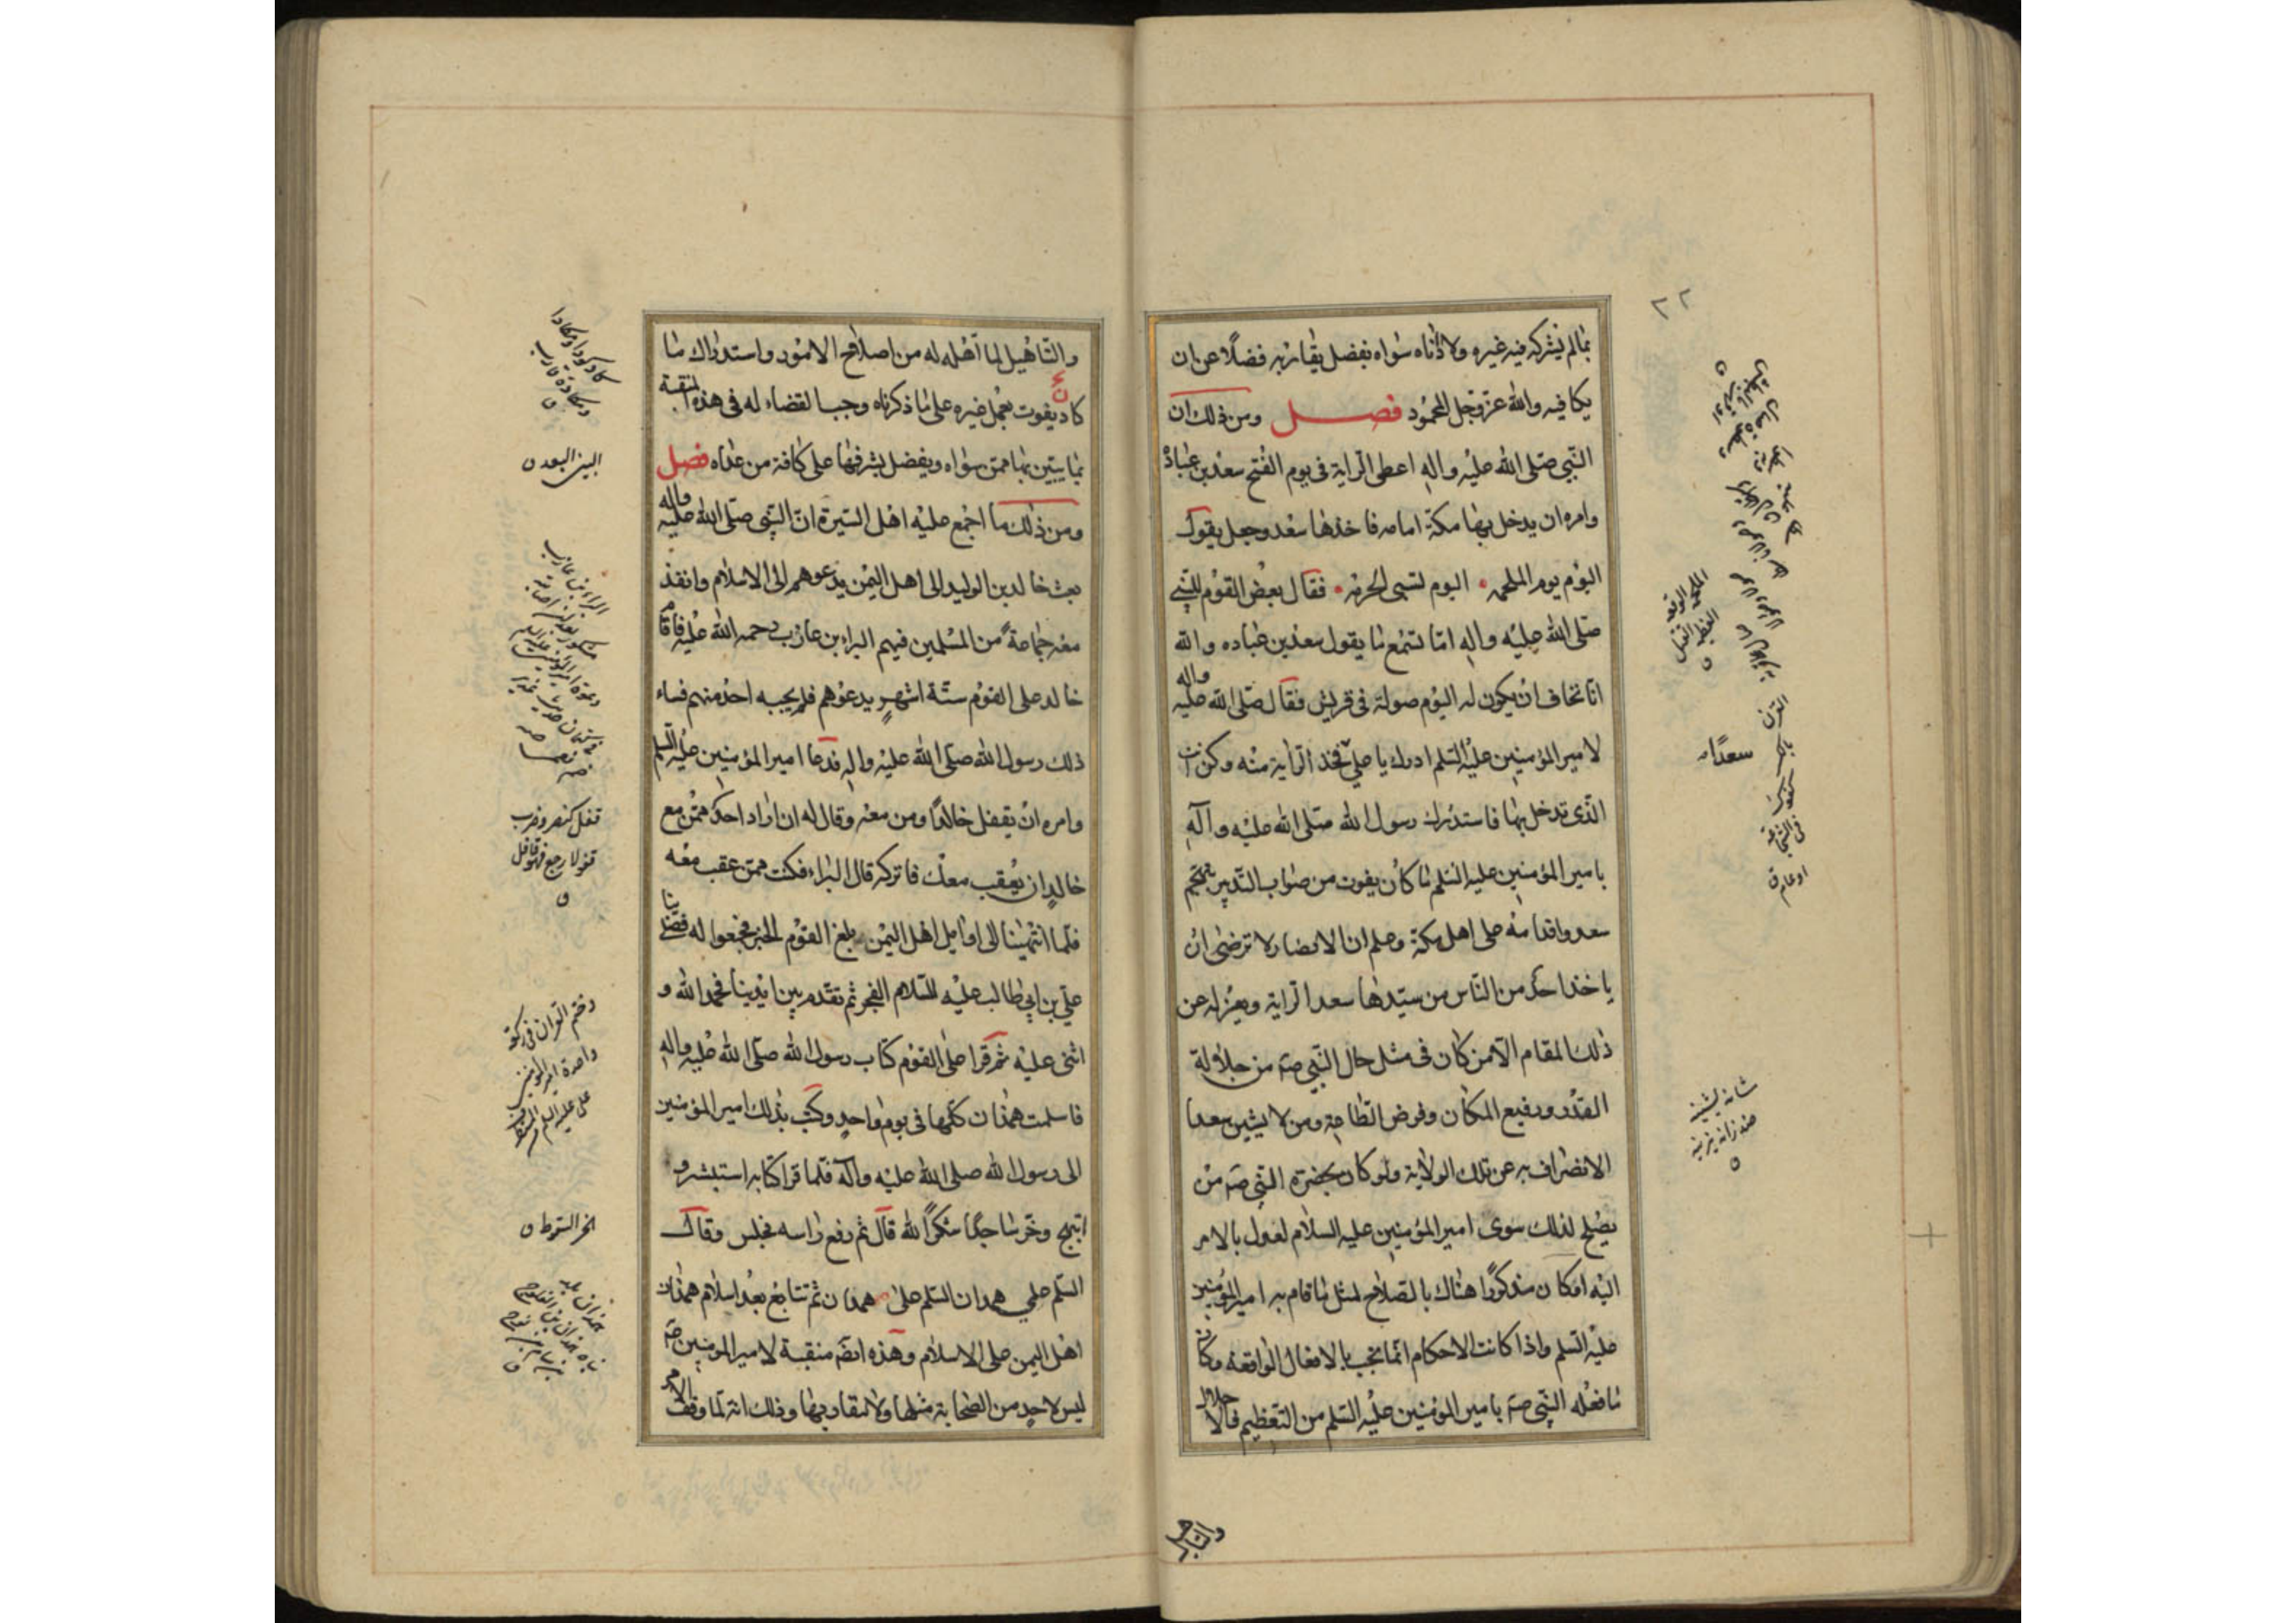 بما لم يشركه فيه غيره ولا داناه سواه بفضل يقاربه فضلًا عن ان
يكافيه والله عزّ وجل المحمود فصل ومن ذلك ان
النّبي صلّى الله عليه واله اعطى الرّاية في يوم الفتح سعد بن عبادة
وامره ان يدخل بها مكّة امامه فاخذها سعد وجعل يقول
اليوم يوم الملحمه اليوم تسبى الحرمه فقال بعض القوم للنّبي
صلّى الله عليه واله اما تسمع ما يقول سعد بن عباده والله
انا نخاف ان يكون له اليوم صولة في قريش فقال صلّى الله عليه واله
لامير المؤمنين عليه السّلم ادرك يا علي فخذ الرّاية منه وكن انت
الّذي تدخل بها فاستدرك رسول الله صلّى الله عليه وآله
بامير المؤمنين عليه السّلم ما كان يفوت من صواب التّدبير بتهجّم
سعد واقدامه على اهل مكّة وعلم ان الانصار لا ترضى ان
ياخذ احد من النّاس من سيّدها سعد الرّاية ويعزله عن
ذلك المقام الّا من كان في مثل حال النّبي صه من جلالة
القدر ورفيع المكان وفرض الطّاعة ومن لا يشين سعدا
الانصراف به عن تلك الولاية ولو كان بحضرة النّبي صه من
يصلح لذلك سوى امير المؤمنين عليه السلام لعدل بالامر
اليه او كان مذكورًا هناك بالصّلاح لمثل ما قام به امير المؤمنين
عليه السّلم واذا كانت الاحكام انّما تجب بالافعال الواقعه وكان
ما فعله النّبي صه بامير المؤمنين عليه السّلم من التّعظيم والاجلال
والتّاهيل لما اهّله له من اصلاح الامور واستدراك ما
كان يفوت بعمل غيره على ما ذكرناه وجب القضاء له في هذه المنقبة
بما يبين بها ممن سواه ويفضل بشرفها على كافة من عداه فصل
ومن ذلك ما اجمع عليه اهل السّيرة انّ النّبي صلّى الله عليه واله
بعث خالد بن الوليد الى اهل اليمن يدعوهم الى الاسلام وانفذ
معه جماعة من المسلمين فيهم البراء بن عازب رحمه الله عليه فاقام
خالد على القوم ستّة اشهرٍ يدعوهم فلم يجبه احد منهم فساء
ذلك رسول الله صلّى الله عليه واله فدعا امير المؤمنين عليه السّلم
وامره ان يقفل خالدًا ومن معه وقال له ان اراد احد ممّن مع
خالدٍ ان يعقب معك فاتركه قال البراء فكنت ممن عقب معه
فلمّا انتهينا الى اوايل اهل اليمن بلغ القوم الخبر فجمعوا له فصلى بنا
علي بن ابي طالب عليه السلام الفجر ثم تقدم بين ايدينا فحمد الله و
اثنى عليه ثم قرا على القوم كتاب رسول الله صلّى الله عليه واله
فاسلمت همدان كلّها في يوم واحدٍ وكتب بذلك امير المؤمنين
الى رسول الله صلى الله عليه وآله فلما قرا كتابه استبشر و
ابتهج وخرّ ساجدًا شكرًا لله قال ثم رفع راسه فجلس وقال
السّلم على همدان السّلم على همدان ثم تتابع بعد اسلام همدان
اهل اليمن على الاسلام وهذه ايضًا منقبة لامير المؤمنين صه
ليس لاحدٍ من الصّحابة مثلها ولا مقاربها وذلك انّه لمّا وقف الامر
سعدًا
البين البعد
قفل كنصر وضرب
قفولا رجع فهو قافل
وختم القران في ركعة
واحدة امير المؤمنين
الخر السقوط